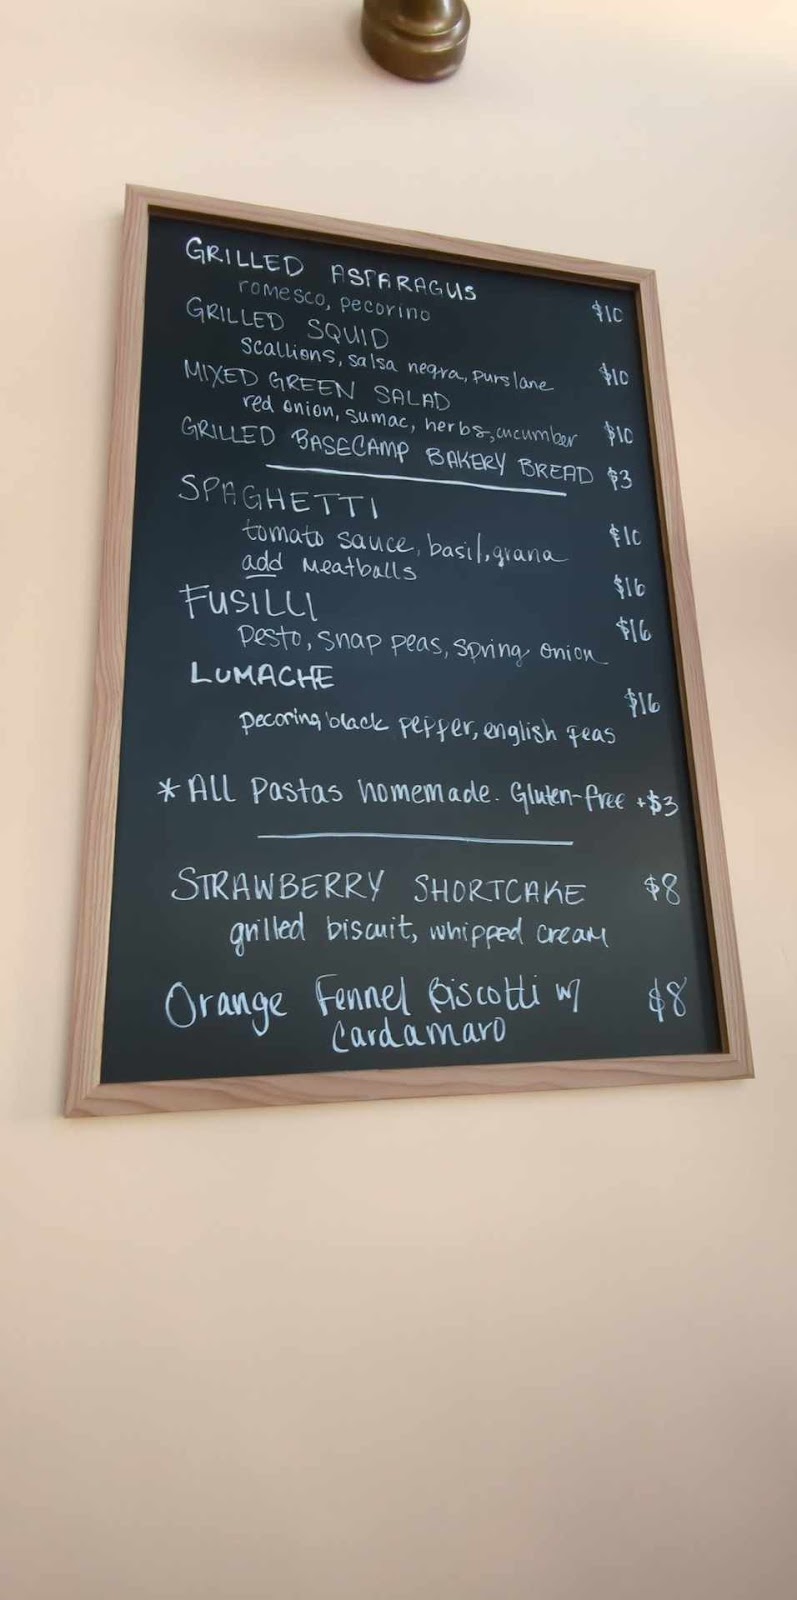 GRILLED ASPARAGUS
romesco, pecorino $10
GRILLED SQUID
scallions, salsa negra, purslane $10
MIXED GREEN SALAD
red onion, sumac, herbs, cucumber $10
GRILLED BASECAMP BAKERY BREAD $3
SPAGHETTI
tomato sauce, basil, grana $10
add meatballs $16
FUSILLI $16
pesto, snap peas, spring onion
LUMACHE $16
pecorino, black pepper, english peas
* All Pastas homemade. Gluten-free +$3
STRAWBERRY SHORTCAKE $8
grilled biscuit, whipped cream
Orange Fennel Biscotti w/ $8
Cardamaro